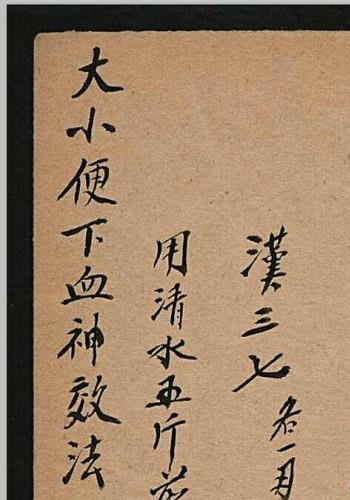 漢三七 各一
用清水五斤
大小便下血神效法